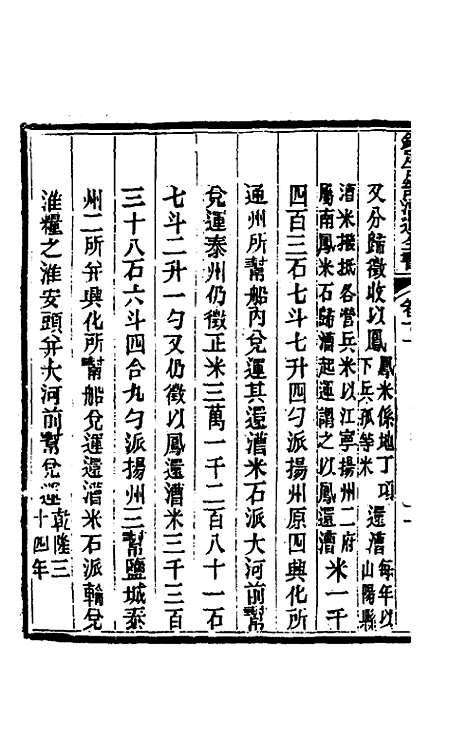 又分歸徵收以鳳鳳米係地丁項下兵孤等米還漕每年以山陽縣
漕米撥抵各營兵米以江寧揚州二府屬南鳳米石歸漕起運謂之以鳳還漕米一千
四百三石七斗七升四勺派揚州原四興化所
通州所幫船內兌運其還漕米石派大河前幫
兌運泰州仍徵正米三萬一千二百八十一石
七斗二升一勺又仍徵以鳳還漕米三千三百
三十八石六斗四合九勺派揚州三幫鹽城泰
州二所幷興化所幫船兌運還漕米石派輪兌
淮糧之淮安頭幷大河前幫兌運乾隆三十四年